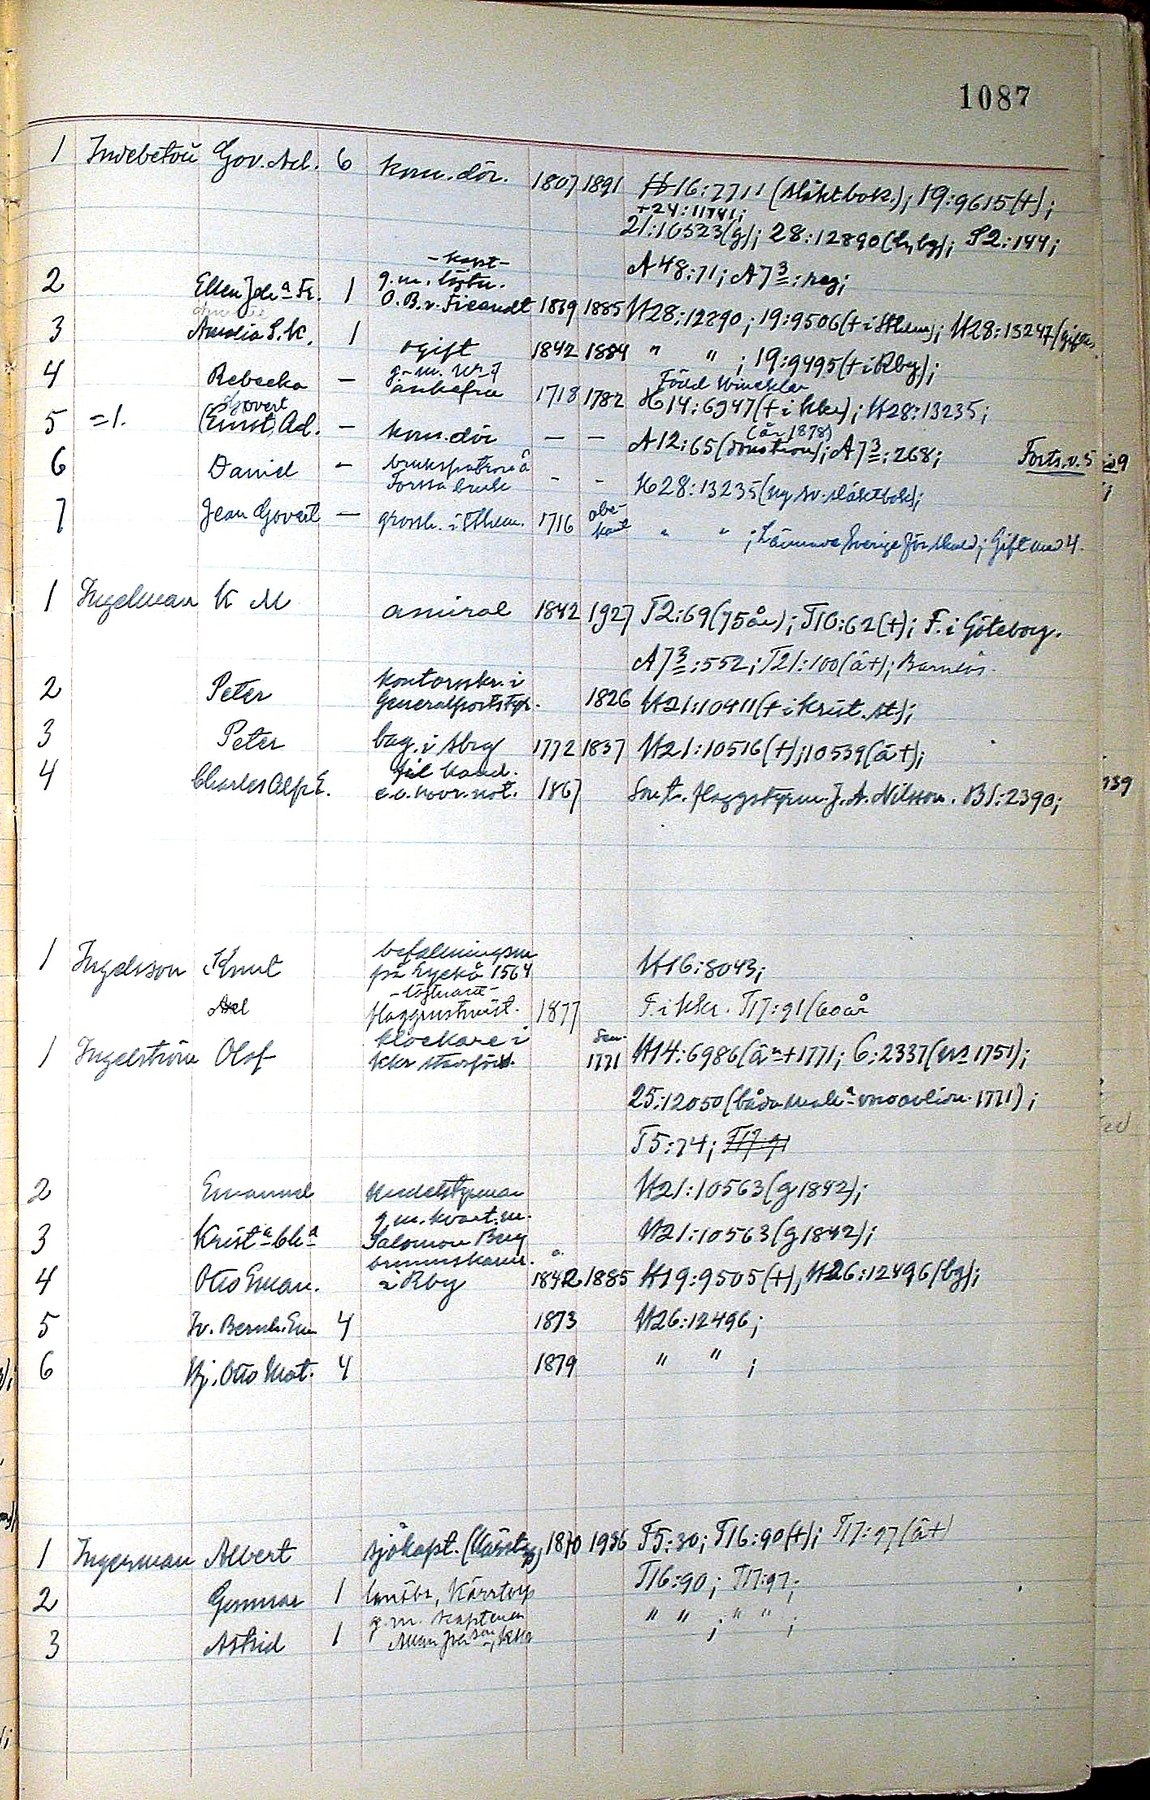 1087
1 Gov. Ad. 6 kom. dör. 1807 1891 H16:7711 (släktbok.); 19:9615(+);
+24:11741;
21:16523(g); 28:12890(lybg); S2:144;
A48:71; A73:reg;
- kapt -
2 Ellen 1 g. m. löjtn.
O. B. v. Fieandt 1869 1885 H28:12890; 19:9506(+ i Sthlm); H28:13247(gift
3 Amalia S. K. 1 ogift 1842 1884 " " ; 19:9495(+ i Rby);
4 Rebecka - g. m. nr 7
änkefru 1718 1782 Född Winckler
H14:6947(+ i kkr); H28:13235;
5 =1. Govert
(Ernst) Ad. - kom. dör - - (år 1878)
A12:65 (donation); A73:268; Forts. v. 5
6 Daniel - brukspatron å
Forssa bruk - - H28:13235(ny sv. släktbok);
7 Jean Govert - grossh. i Sthlm. 1716 obe-
kant " " ; Lämnade Sverige för skuld; Gift med 4.
1 Ingelman K M amiral 1842 1927 T2:69(75 år); T10:62(+); F. i Göteborg.
A73:552; T21:100(å+); Barnlös.
2 Peter kontorsskr. i
Generalpoststyr. 1826 H21:10411(+ i Krist. st);
3 Peter bag. i Sbrg 1772 1837 H21:10516(+); 10539(å+);
4 Charles Alfr E. fil kand.
e. o. hovr. not. 1867 Son t. flaggstyrm. J. A. Nilsson. B1:2390;
1 Ingelsson Knut befallningsm
på Lyckå 1564 H16:8043;
Axel - löjtnant -
flaggunstruct. 1877 F. i kkr. T17:91(60 år
1 Ingelström Olof klockare i
kkr stadsförs. 1771 H14:6986(å+1771; 6:2337(1751);
25:12050(1771);
T5:74; T17:91
2 Emanuel understyrman H21:10563(g 1842);
3 g. m. kvart. m.
Salomon Berg H21:10563(g 1842);
4 Otto Eman. brunnskamr.
i Rby 1842 1885 H19:9505(+), H26:12496(bg);
5 Iv. Bernh. Em 4 1873 H26:12496;
6 Hj. Otto Mat. 4 1879 " " ;
1 Ingerman Albert sjökapt. (Kärrtorp) 1870 1936 T5:30; T16:90(+); T17:97(å+)
2 Gunnar 1 lantbr, Kärrtorp T16:90; T17:97;
3 Astrid 1 g. m. kaptenen " " ; " " ;